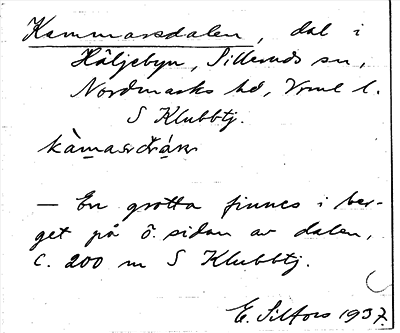 Kammarsdalen, dal i
Häljebyn, Silleruds sn,
Nordmarks hd, Vrml l.
S Klubbtj.
— En grotta finnes i ber-
get på ö. sidan av dalen,
c. 200 m S Klubbtj.
E. Silfors 1937.